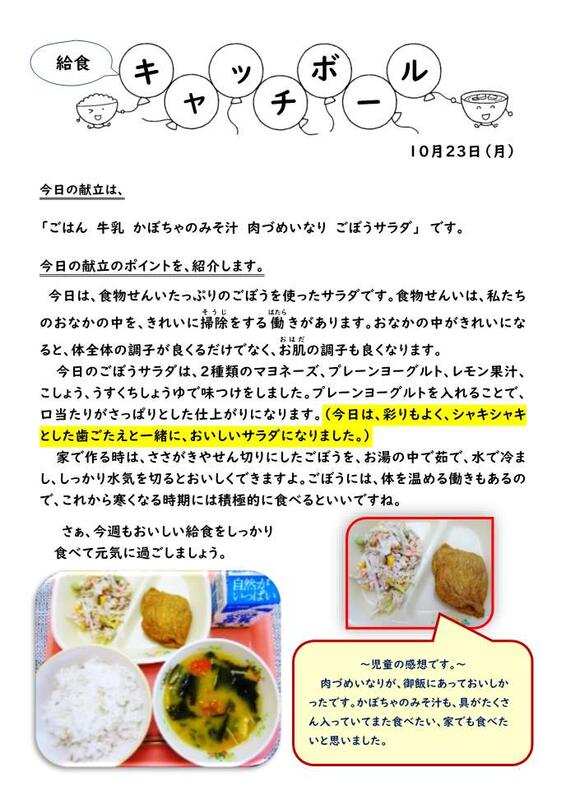 給食
キャッチボール
10月23日（月）
今日の献立は、
「ごはん 牛乳 かぼちゃのみそ汁 肉づめいなり ごぼうサラダ」 です。
今日の献立のポイントを、紹介します。
今日は、食物せんいたっぷりのごぼうを使ったサラダです。食物せんいは、私たち
のおなかの中を、きれいに掃除をする働きがあります。おなかの中がきれいにな
ると、体全体の調子が良くなるだけでなく、お肌の調子も良くなります。
今日のごぼうサラダは、２種類のマヨネーズ、プレーンヨーグルト、レモン果汁、
こしょう、うすくちしょうゆで味つけをしました。プレーンヨーグルトを入れることで、
口当たりがさっぱりとした仕上がりになります。（今日は、彩りもよく、シャキシャキ
とした歯ごたえと一緒に、おいしいサラダになりました。）
家で作る時は、ささがきやせん切りにしたごぼうを、お湯の中で茹で、水で冷ま
し、しっかり水気を切るとおいしくできますよ。ごぼうには、体を温める働きもあるの
で、これから寒くなる時期には積極的に食べるといいですね。
さぁ、今週もおいしい給食をしっかり
食べて元気に過ごしましょう。
自然が
いっぱい
～児童の感想です。～
肉づめいなりが、御飯にあっておいしか
ったです。かぼちゃのみそ汁も、具がたくさ
ん入っていてまた食べたい、家でも食べた
いと思いました。